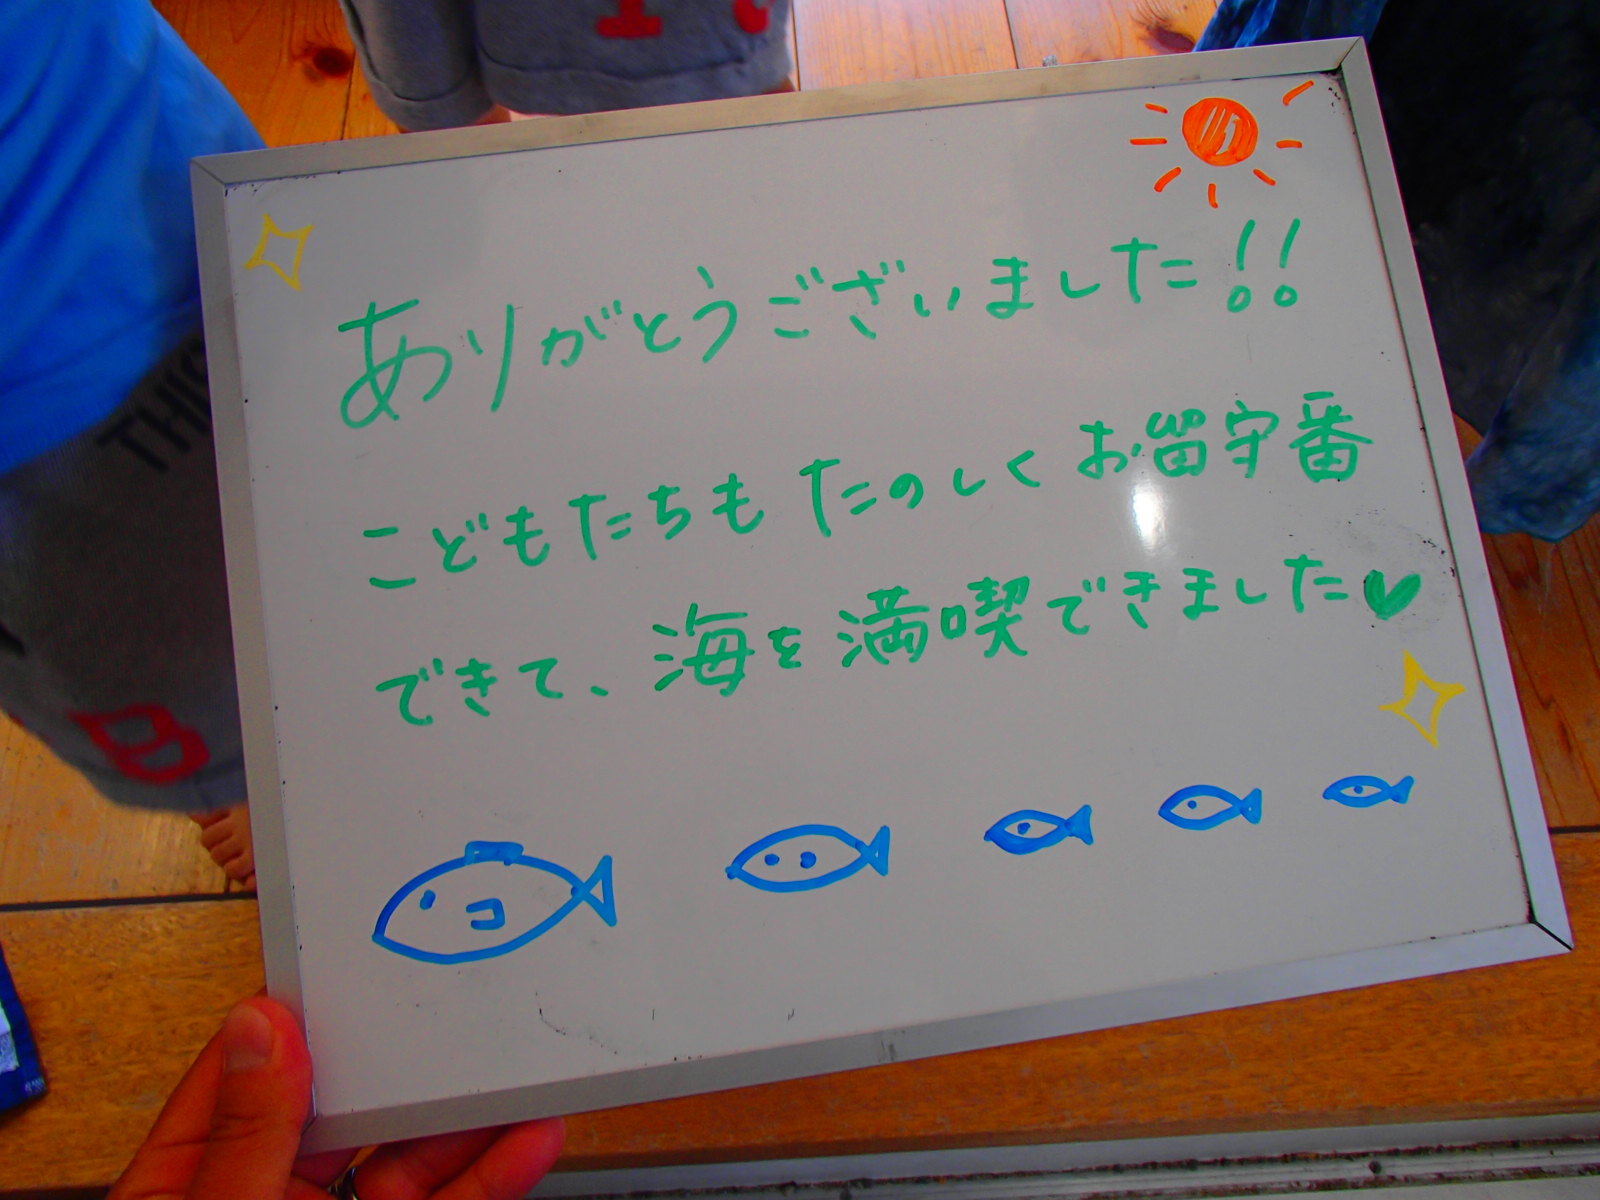 ありがとうございました!!
こどもたちも たのしくお留守番
できて、海を満喫できました♥
THIS
B